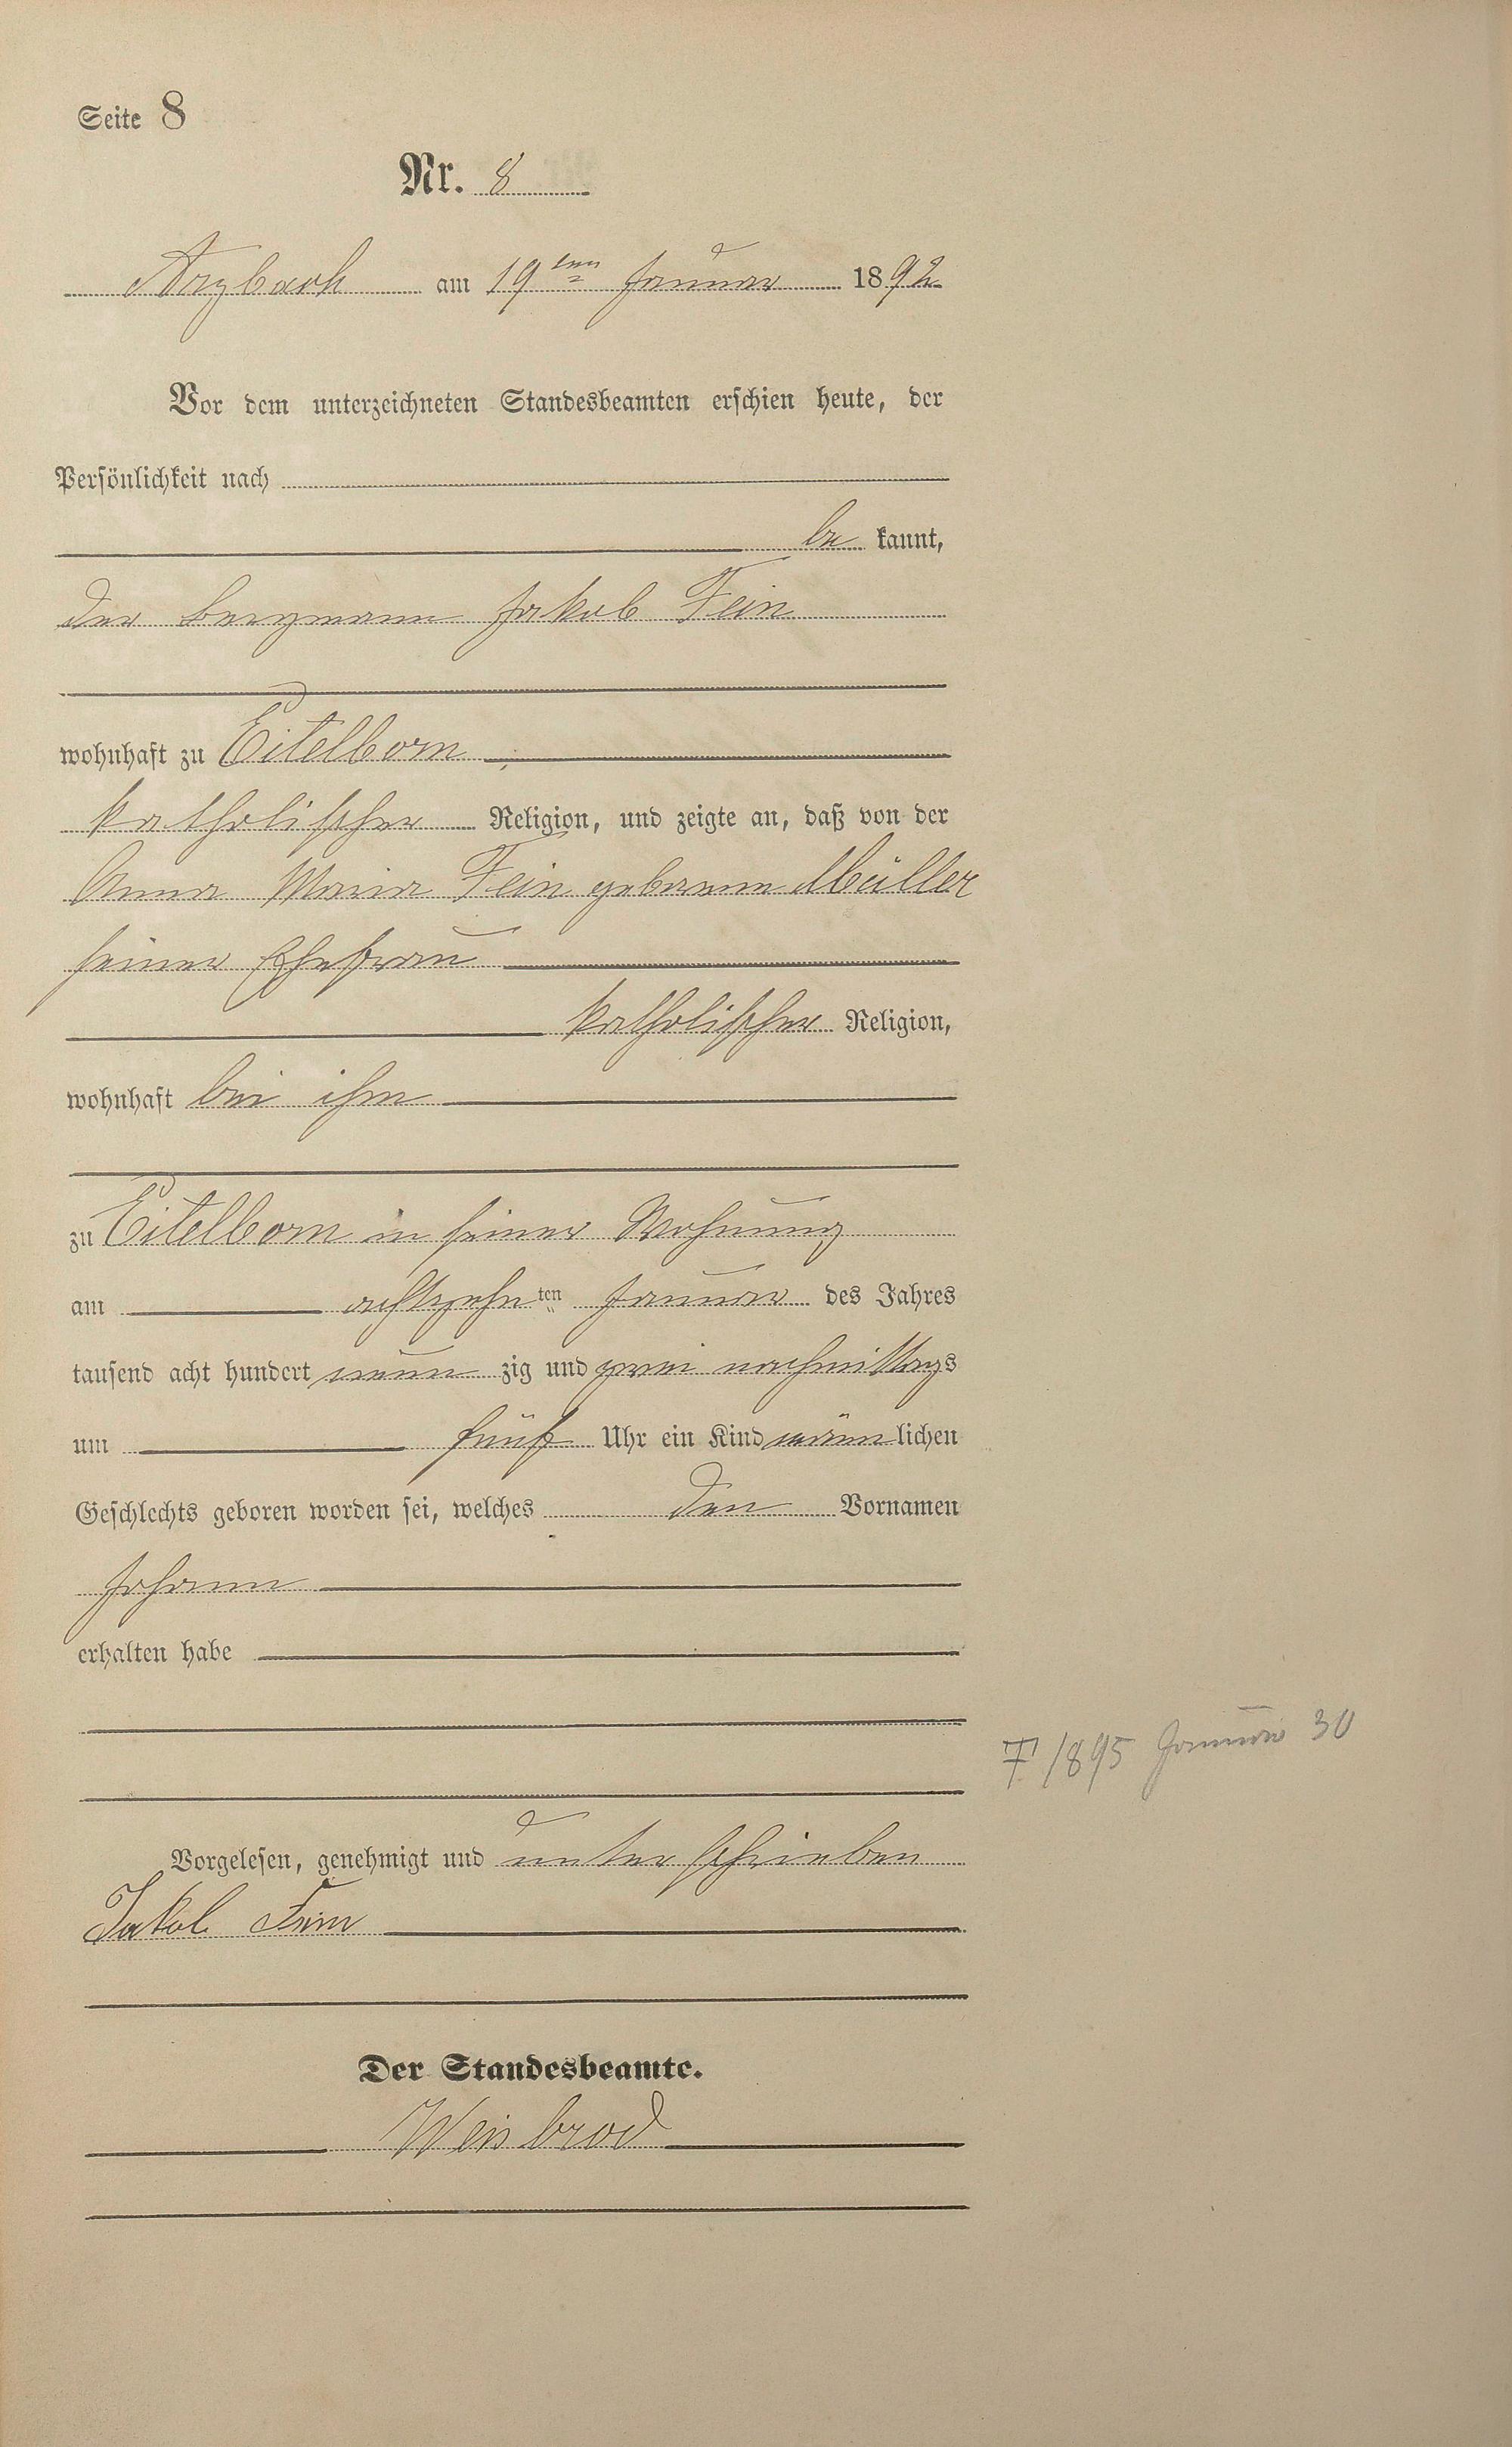 Seite 8
Nr. 8
Arzbach am 19ten Januar 1892
Vor dem unterzeichneten Standesbeamten erschien heute, der
Persönlichkeit nach
be kannt,
der Bergmann Jakob Fein
wohnhaft zu Eitelborn
katholischer Religion, und zeigte an, daß von der
Anna Maria Fein geborene Müller
seiner Ehefrau
katholischer Religion,
wohnhaft bei ihm
zu Eitelborn in seiner Wohnung
am achtzehnten Januar des Jahres
tausend acht hundert neun zig und zwei nachmittags
um fünf Uhr ein Kind männlichen
Geschlechts geboren worden sei, welches den Vornamen
Johann
erhalten habe
† 1895 Januar 30
Vorgelesen, genehmigt und unterschrieben
Jakob Fein
Der Standesbeamte.
Weisbrod